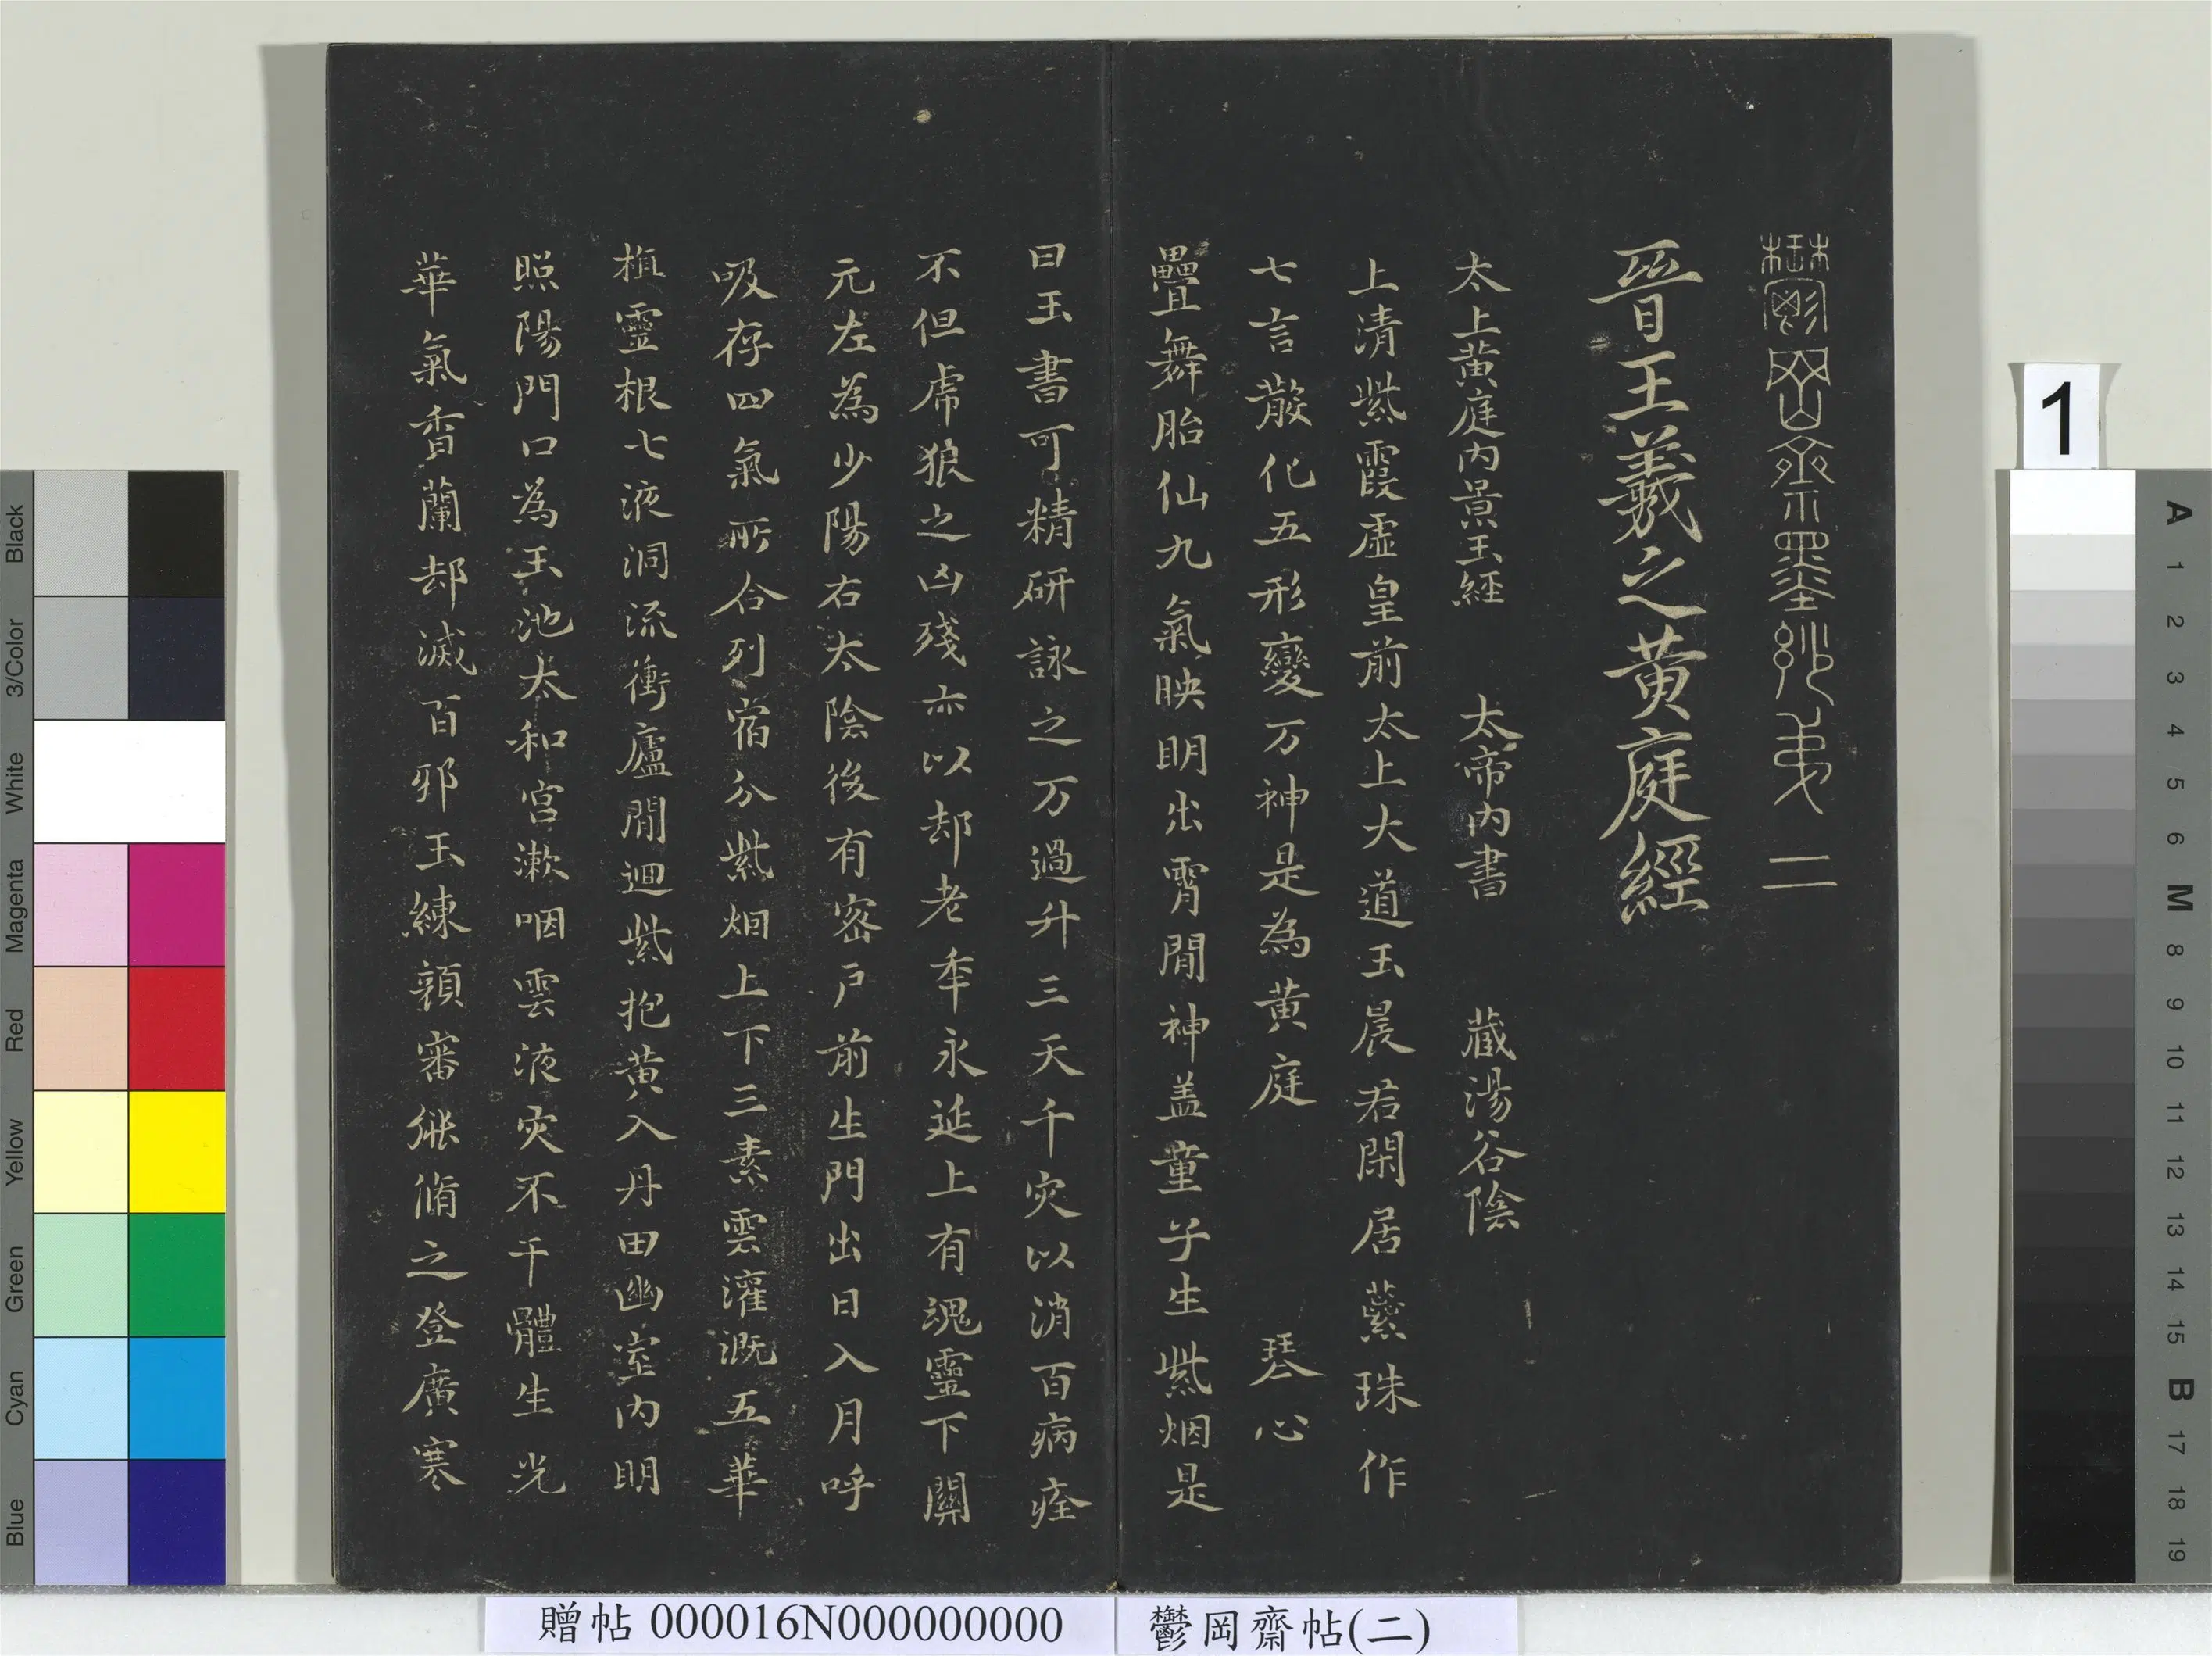 鬱岡齋墨妙弟二
晉王羲之黄庭經
太上黄庭内景玉經 太帝内書 藏湯谷陰
上清紫霞虛皇前太上大道玉晨君閑居蘂珠作
七言散化五形變万神是為黄庭 琴心
疊舞胎仙九氣映明出霄間神盖童子生紫烟是
曰玉書可精研詠之万過升三天千灾以消百病痊
不但虎狼之凶殘亦以却老年永延上有魂靈下關
元左為少陽右太陰後有密户前生門出日入月呼
吸存四氣所合列宿分紫烟上下三素雲灌溉五華
植靈根七液洞流衝廬間迴紫抱黄入丹田幽室内明
照陽門口為玉池太和宫漱咽雲液灾不干體生光
華氣香蘭却滅百邪玉練顔審能脩之登廣寒
贈帖 000016N000000000
鬱岡齋帖(二)
1
Black
3/Color
White
Magenta
Red
Yellow
Green
Cyan
Blue
A 1 2 3 4 5 6 M 8 9 10 11 12 13 14 15 B 17 18 19